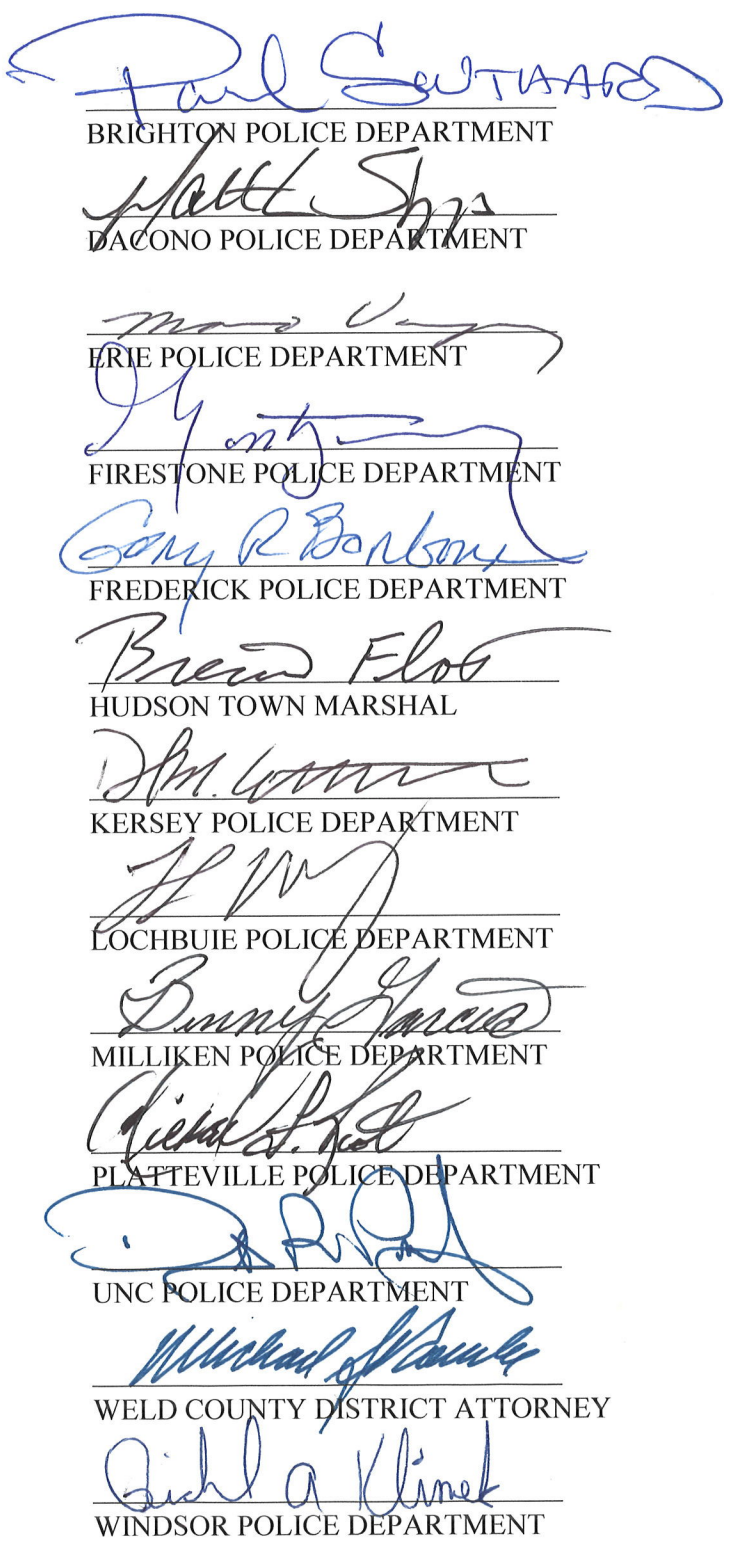 Paul Southard
BRIGHTON POLICE DEPARTMENT
Matt
DACONO POLICE DEPARTMENT
ERIE POLICE DEPARTMENT
FIRESTONE POLICE DEPARTMENT
Gary R Barbour
FREDERICK POLICE DEPARTMENT
HUDSON TOWN MARSHAL
KERSEY POLICE DEPARTMENT
LOCHBUIE POLICE DEPARTMENT
Benny Garcia
MILLIKEN POLICE DEPARTMENT
PLATTEVILLE POLICE DEPARTMENT
UNC POLICE DEPARTMENT
Michael J Rourke
WELD COUNTY DISTRICT ATTORNEY
A Klimek
WINDSOR POLICE DEPARTMENT